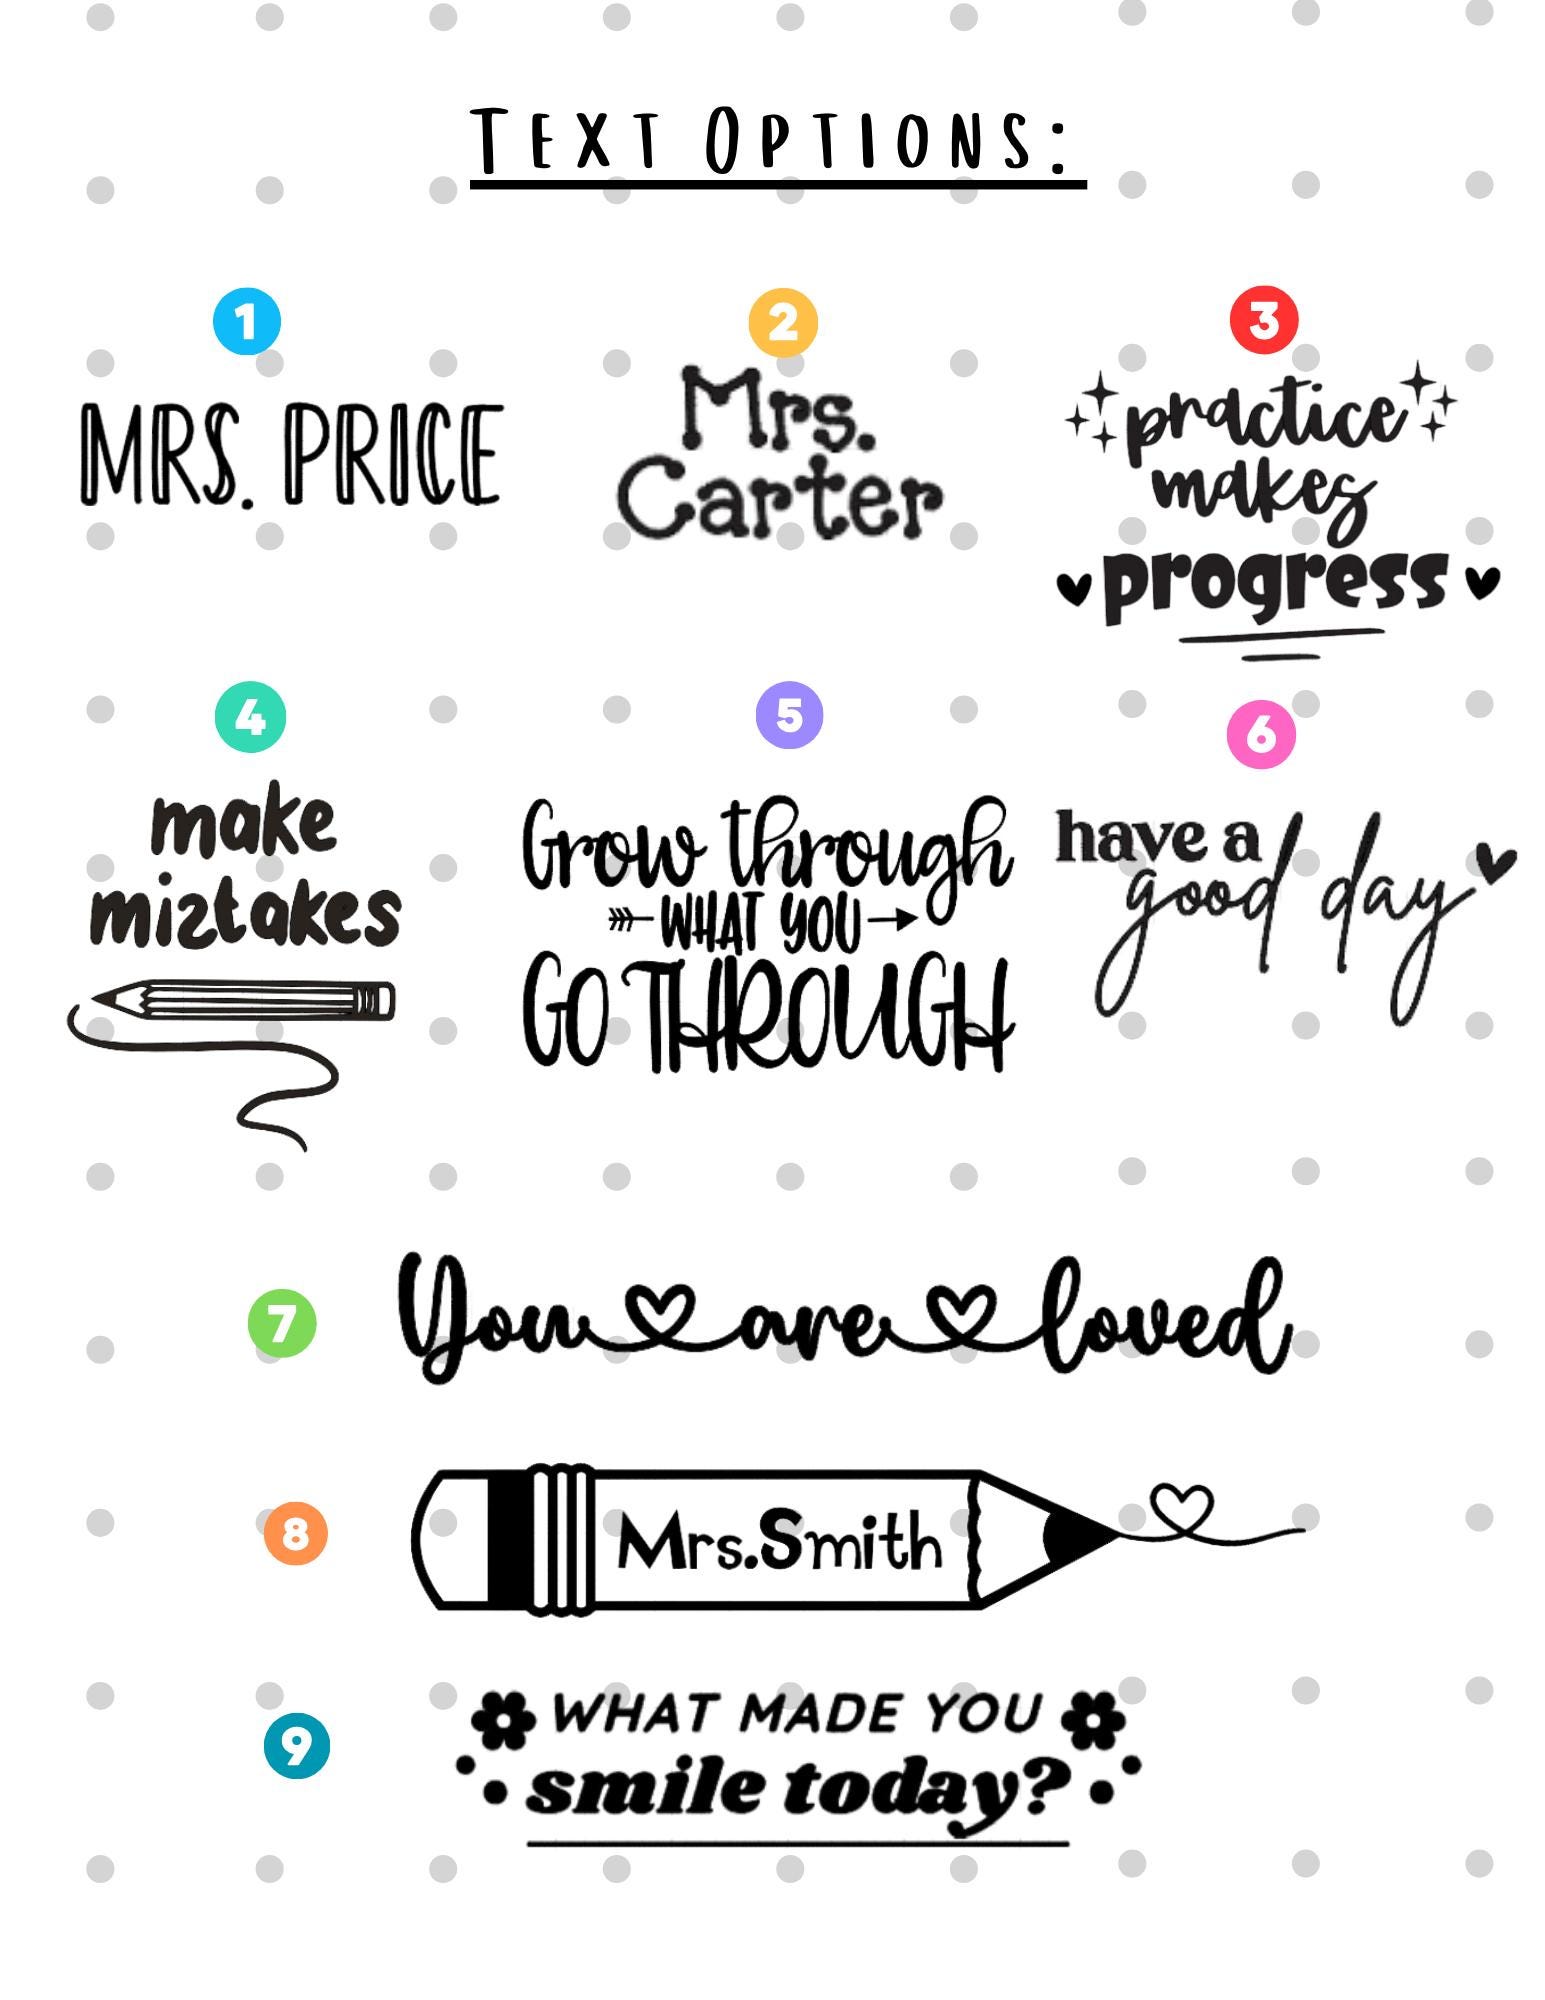 TEXT OPTIONS:
1
MRS. PRICE
2
Mrs.
Carter
3
practice
makes
progress
4
make
mistakes
5
Grow through
WHAT YOU
GO THROUGH
6
have a
good day
7
You are loved
8
Mrs.Smith
9
WHAT MADE YOU
smile today?